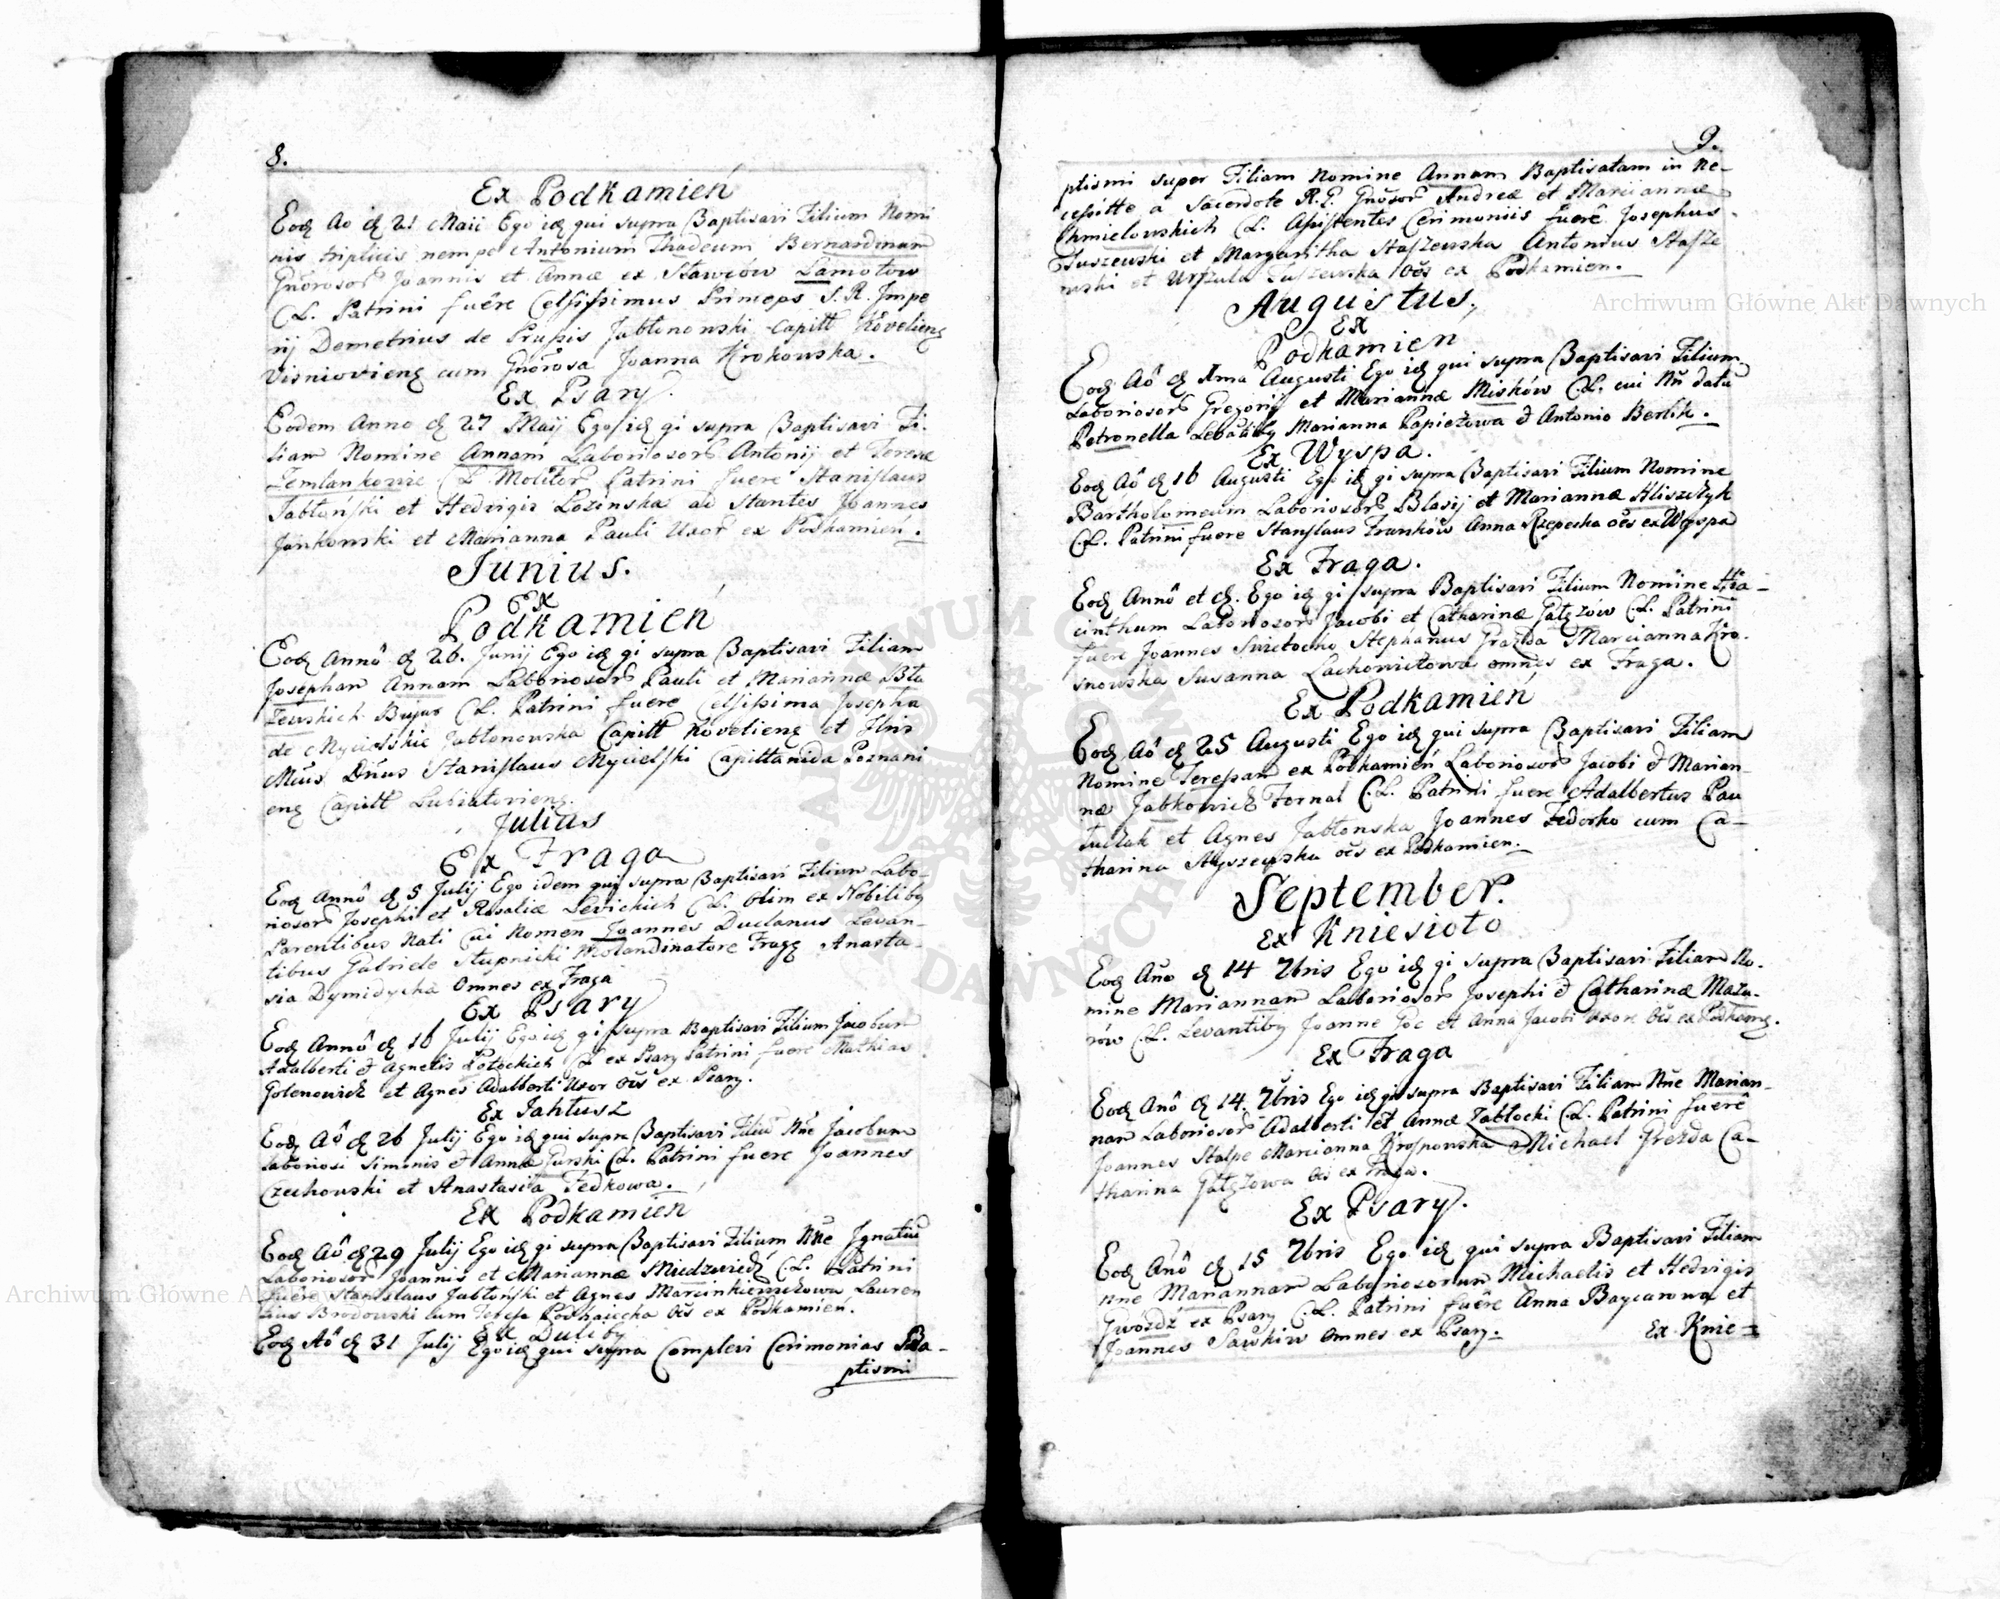 8.
Ex Podkamień
Eod Ao d 21 Maii Ego id qui supra Baptisavi Filium Nomi
nis triplicis nempe Antonium Thadeum Bernardinum
Gnôrosor Joannis et Annæ ex Stawców Lamotow
C.L. Patrini fuêre Celsissimus Princeps S. R. Impe
rij Demetrius de Prussis Jabłonowski Capitt Kovelieng
Visniovieng cum Gnôrosa Joanna Krokowska.
Ex Psary.
Eodem Anno d 27 Maij Ego id qi supra Baptisavi Fi-
liam Nomine Annam Laboriosor Antonij et Teresæ
C.L. Molitor Patrini fuere Stanislaus
Jabłoński et Hedvigis Lozinska ad Stantes Joannes
Jankowski et Marianna Pauli Uxor ex Podkamień.
Junius.
Ex
Podkamień
Eod Annô d 26. Junij Ego id qi supra Baptisavi Filiam
Josepham Annam Laboriosor Pauli et Mariannæ Bła
Zewskich C.L. Patrini fuere Celsissima Josepha
de Mycielskie Jabłonowska Capitt Kovelieng et Illris
Mius Dñus Stanislaus Mycielski Capittanida Poznani
eng Capitt Lubiatovieng.
Julius
Ex Fraga
Eod Annô d 5 Julij Ego idem qui supra Baptisavi Filium Labo-
riosor Josephi et Rosaliæ Levickich C.L. olim ex Nobiliby
Parentibus Nati Cui Nomen Joannes Duclanus Levan-
tibus Gabriele Stupnicki Molandinatore Fragę Anasta-
sia Dymidycha Omnes ex Fraga
Ex Psary
Eod Annô d 16 Julij Ego id qi supra Baptisavi Filium Jacobum
Adalberti & Agnetis Potockich CL ex Psary Patrini fuere Mathias
Golenowicz et Agnes Adalberti Uxor Oês ex Psary.
Ex Jahtusz
Eod Aô d 26 Julij Ego id qui supra Baptisavi Filiu Nñe Jacobum
Laboriosi Simonis & Annæ Gurski C.L. Patrini fuere Joannes
Czechowski et Anastasiia Fedkowa.
Ex Podkamień
Eod Aô d 29 Julij Ego id qi supra Baptisavi Filium Nñe Ignatiu
Laboriosor Joannis et Mariannæ Miedzwiedz C.L. Patrini
fuêre Stanislaus Jabłoński et Agnes Marcinkiewiczowa Lauren
tius Brodowski cum Teressa Podhaiecka Oês ex Podkamień.
Ex Duliby
Eod Aô d 31 Julij Ego id qui supra Complevi Cerimonias Ba-
ptismi
9.
ptismi super Filiam Nomine Annam Baptisatam in Ne-
cessitte a Sacerdote R.G. Gnôsor Andreæ et Mariannæ
Chmielowskich C.L. Assistentes Cerimoniis fuerê Josephus
Tuszewski et Margaritha Staszewska Antonius Stasze
wski et Urszula Tuszewska Oês ex Podkamien.
Augustus.
Ex
Podkamien
Eod Aô d Xma Augusti Ego id qui supra Baptisavi Filium
Laboriosor Gregorij et Mariannæ Misków C.L. cui Nñ datu
Petronella Levatiby Marianna Papieżowa & Antonio Berlik.
Ex Wyspa.
Eod Aô d 16 Augusti Ego id qi supra Baptisavi Filium Nomine
Bartholomeum Laboriosor Blasij et Mariannæ Hliszczyk
C.L. Patrini fuere Stanslaus Franków Anna Rzepecka oês ex Wyspa
Ex Fraga.
Eod Annô et d. Ego id qi supra Baptisavi Filium Nomine Hia-
cinthum Laboriosor Jacobi et Catharinæ Gałęzow C.L. Patrini
fuêre Joannes Swietocho Stephanus Grażda Marcianna Kro-
snowska Susanna Lachowiczowa omnes ex Fraga.
Ex Podkamień
Eod Aô d 25 Augusti Ego id qui supra Baptisavi Filiam
Nomine Teressam ex Podkamień Laboriosor Jacobi & Marian-
næ Jabkowicz Fornal C.L. Patrini fuere Adalbertus Pau
luczak et Agnes Jabłonska Joannes Fedorko cum Ca-
tharina Styszewska oês ex Podkamien.
September.
Ex Kniesioło
Eod Año d 14 7bris Ego id qi supra Baptisavi Filiam No-
mine Mariannam Laboriosor Josephi & Catharinæ Mazu-
rów C.L. Levantiby Joanne Goc et Anna Jacobi Uxore Oês ex Podkamę.
Ex Fraga
Eod Anô d 14. 7bris Ego id qi supra Baptisavi Filiam Nñe Marian-
nam Laboriosor Adalberti et Annæ Zabłocki C.L. Patrini fuerê
Joannes Stalpe Marcianna Krosnowska Michael Grezda Ca-
tharina Gałęzowa Oês ex Fraga.
Ex Psary.
Eod Anô d 15 7bris Ego id qui supra Baptisavi Filiam
Nñe Mariannam Laboriosorum Michaelis et Hedvigis
Gwozdz ex Psary C.L. Patrini fuêre Anna Baycarowa et
Joannes Sawkiw Omnes ex Psary.
Ex Knie=
Archiwum Główne Akt Dawnych